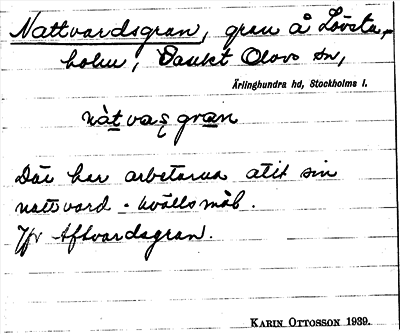 Nattvardsgran, gran å Lövsta-
holm, Sankt Olovs sn,
Ärlinghundra hd, Stockholms l.
nàt vaʂ grán
Där har arbetarna ätit sin
nattvard - kvällsmål.
Jfr Aftvardsgran.
KARIN OTTOSSON 1939.